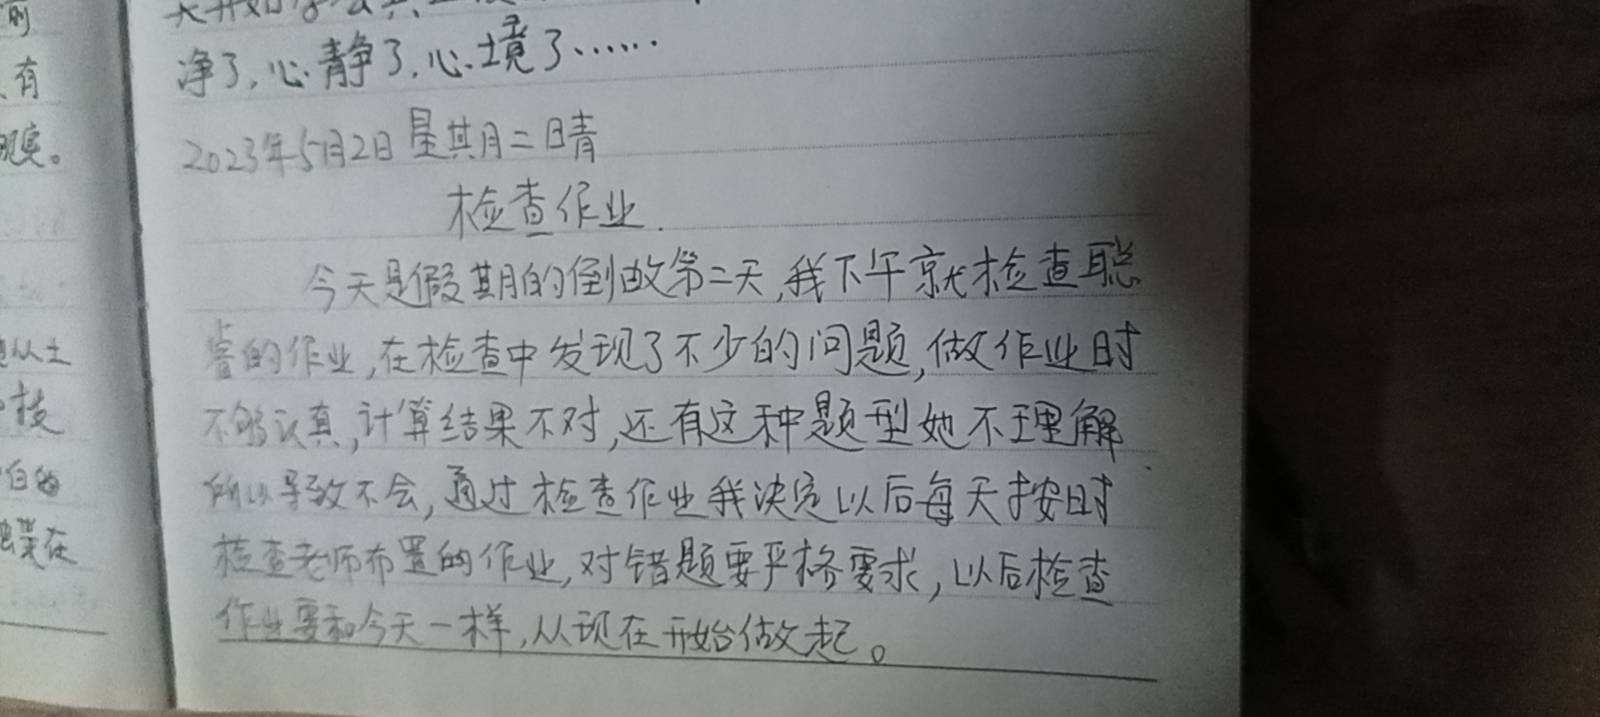 净了,心静了,心境了……
2023年5月2日 星其月二 日晴
检查作业.
今天是假期的倒故第二天,我下午就检查聪
的作业,在检查中发现了不少的问题,做作业时
不够认真,计算结果不对,还有这种题型她不理解
所以导致不会,通过检查作业我决定以后每天按时
检查老师布置的作业,对错题要严格要求,以后检查
作业要和今天一样,从现在开始做起。
有
现实。
从土
技
白的
在